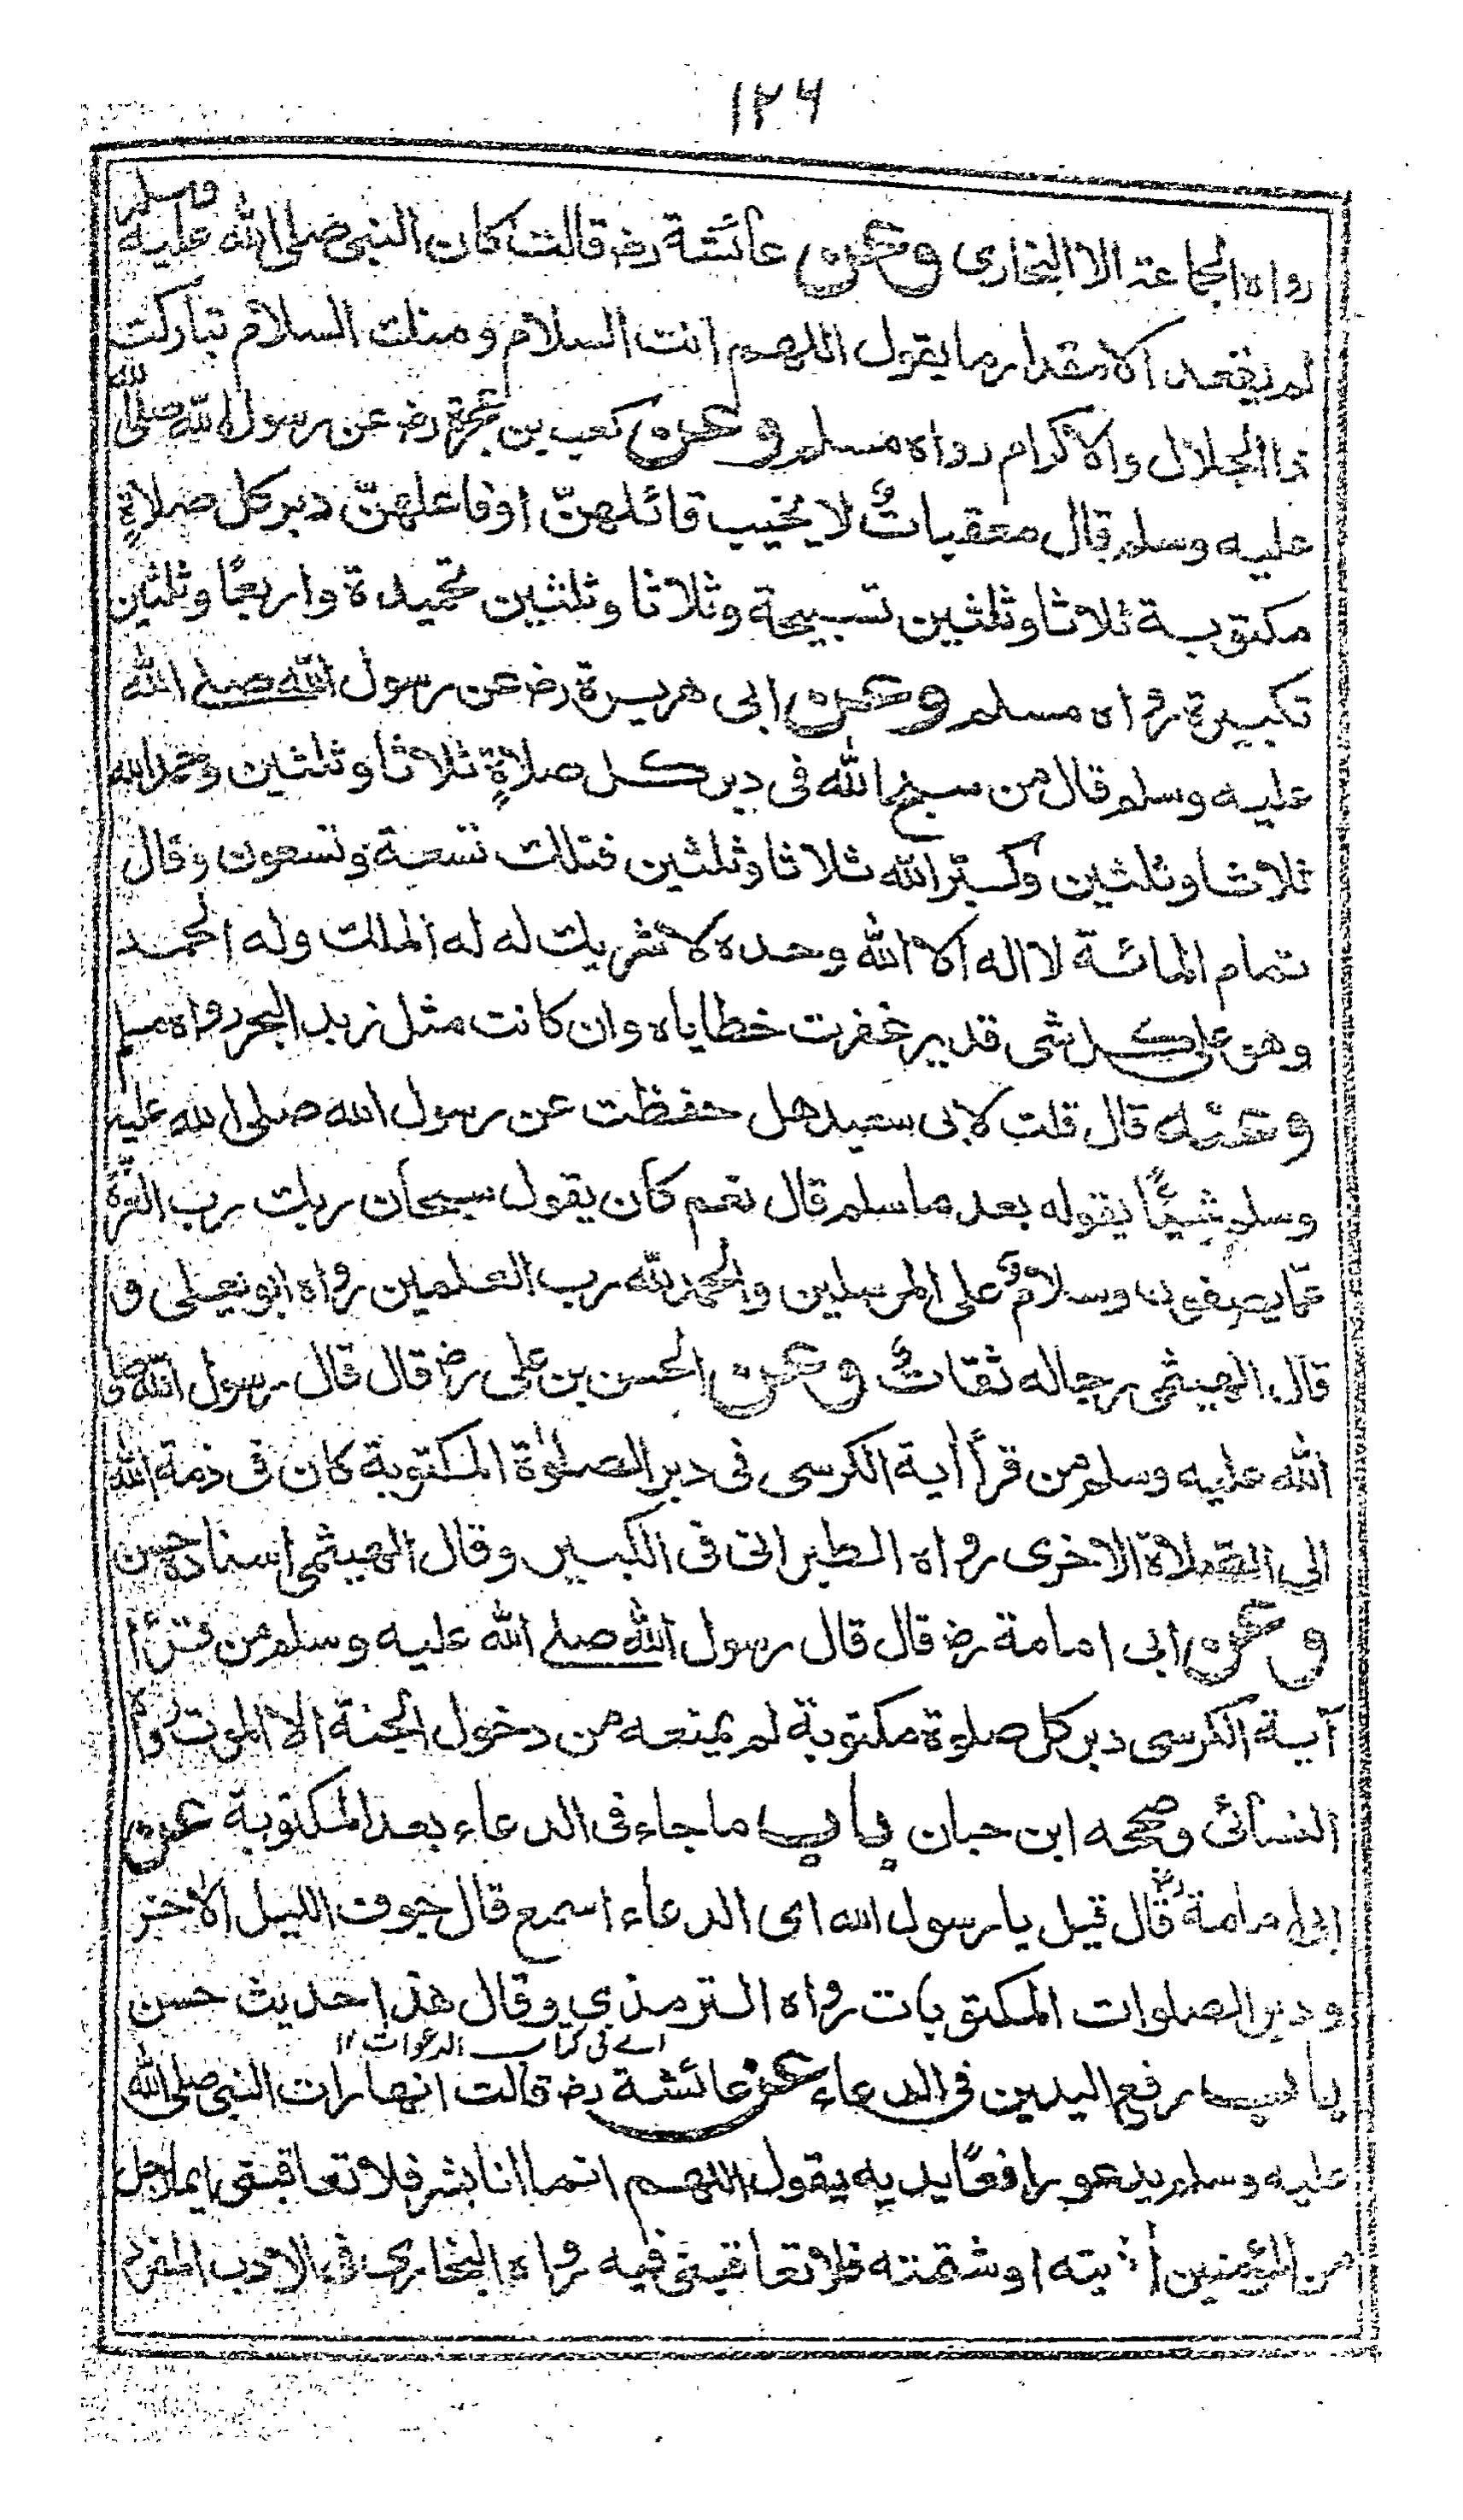 ١٢٦
رواه الجماعة الا البخارى وعن عائشة رض قالت كان النبى صلى الله عليه وسلم
لم يقعد الا مقدار ما يقول اللهم انت السلام ومنك السلام تباركت
ذا الجلال والاكرام رواه مسلم وعن كعب بن عجرة رض عن رسول الله صلى الله
عليه وسلم قال معقباتٌ لا يخيب قائلهنّ او فاعلهنّ دبر كل صلاةٍ
مكتوبة ثلاثا وثلثين تسبيحة وثلاثا وثلثين تحميدة واربعًا وثلثين
تكبيرة رواه مسلم وعن ابى هريرة رض عن رسول الله صلى الله
عليه وسلم قال من سبح الله فى دبر كل صلاةٍ ثلاثا وثلثين وحمد الله
ثلاثا وثلثين وكبّر الله ثلاثا وثلثين فتلك تسعة وتسعون وقال
تمام المائة لا اله الا الله وحده لا شريك له له الملك وله الحمد
وهو على كل شى قدير غفرت خطاياه وان كانت مثل زبد البحر رواه مسلم
وعنه قال قلت لابى سعيد هل حفظت عن رسول الله صلى الله عليه
وسلم شيئًا يقوله بعد ما سلم قال نعم كان يقول سبحان ربك رب العزّة
عمّا يصفون وسلامٌ على المرسلين والحمد لله رب العلمين رواه ابو يعلى و
قال الهيثمى رجاله ثقاتٌ وعن الحسن بن على رض قال قال رسول الله صلى
الله عليه وسلم من قرأ اية الكرسى فى دبر الصلوٰة المكتوبة كان فى ذمة الله
الى الصلاة الاخرى رواه الطبرانى فى الكبير وقال الهيثمى اسناده حسن
وعن ابى امامة رض قال قال رسول الله صلى الله عليه وسلم من قرأ
آية الكرسى دبر كل صلوة مكتوبة لم يمنعه من دخول الجنة الا الموت رواه
النسائى وصححه ابن حبان باب ما جاء فى الدعاء بعد المكتوبة عن
ابى امامة رض قال قيل يا رسول الله اى الدعاء اسمع قال جوف الليل الاخر
ودبر الصلوات المكتوبات رواه الترمذي وقال هذا حديث حسن
اے فی کتاب الدعوات ١٢
باب رفع اليدين فى الدعاء عن عائشة رض قالت انها رات النبى صلى الله
عليه وسلم يدعو رافعًا يديه يقول اللهم انما انا بشر فلا تعاقبنى ايما رجل
من المؤمنين اٰذيته او شتمته فلا تعاقبنى فيه رواه البخارى فى الادب المفرد